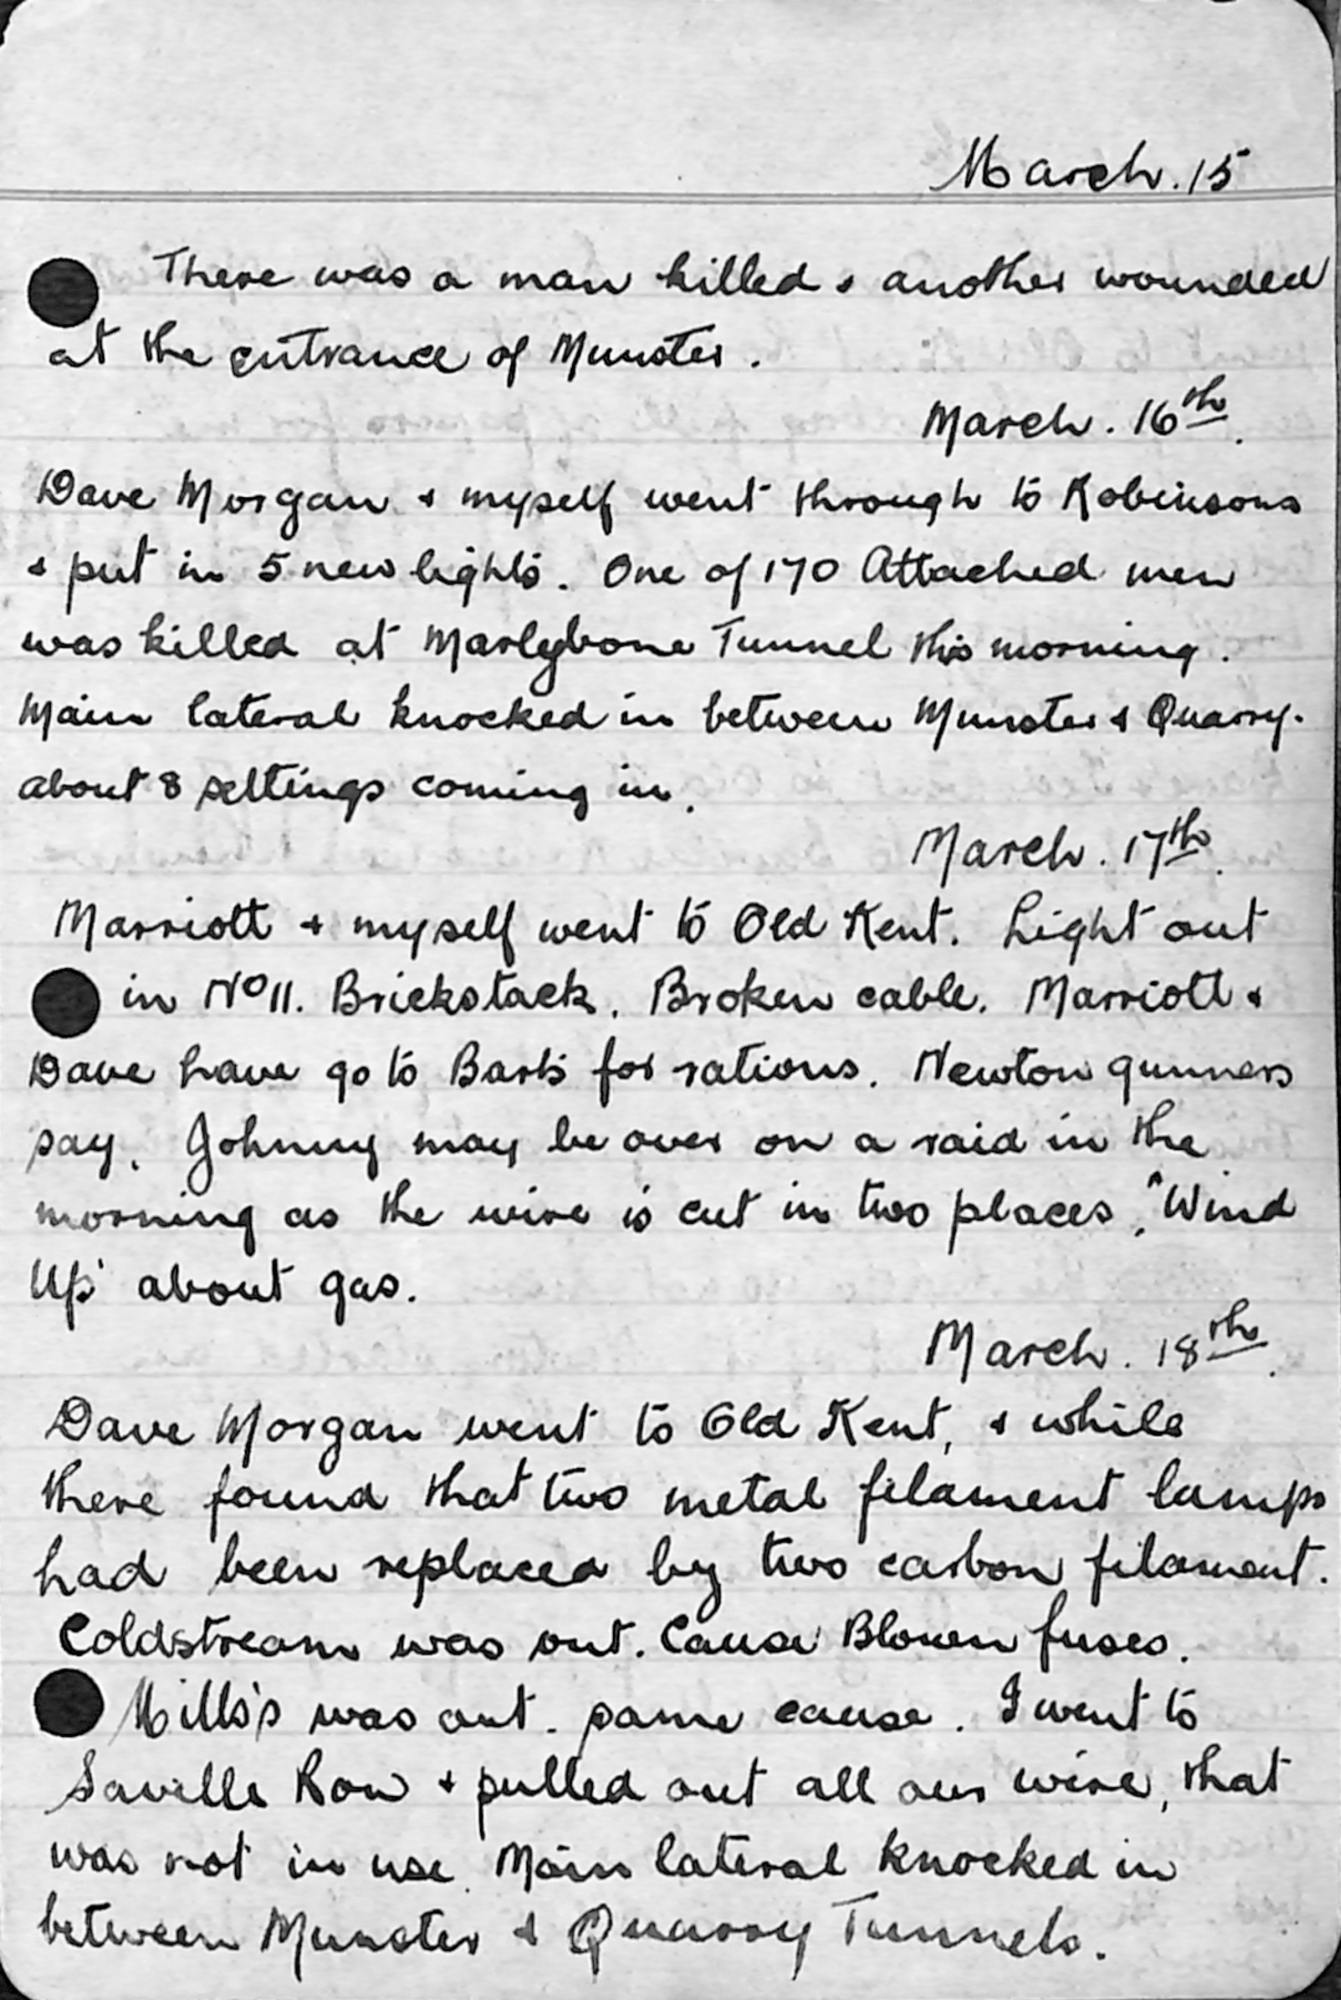 March. 15
There was a man killed & another wounded
at the entrance of Munster.
March. 16th.
Dave Morgan & myself went through to Robinsons
& put in 5 new lights. One of 170 Attached men
was killed at Marlybone Tunnel this morning.
Main lateral knocked in between Munster & Quarry.
about 8 settings coming in.
March. 17th.
Marriott & myself went to Old Kent. Light out
in No 11. Brickstack. Broken cable. Marriott &
Dave have go to Barts for rations. Newton gunners
say. Johnny may be over on a raid in the
morning as the wire is cut in two places. "Wind
Up" about gas.
March. 18th.
Dave Morgan went to Old Kent, & while
there found that two metal filament lamps
had been replaced by two carbon filament.
Coldstream was out. Cause Blown fuses.
Mills's was out. same cause. I went to
Saville Row & pulled out all our wire, that
was not in use. Main lateral knocked in
between Munster & Quarry Tunnels.